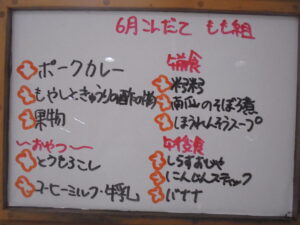 6月こんだて もも組
ポークカレー
もやしときゅうりの酢の物
果物
～おやつ～
とうもろこし
コーヒーミルク・牛乳
午前食
南瓜のそぼろ煮
ほうれんそうスープ
午後食
しらすおじや
にんじんスティック
バナナ